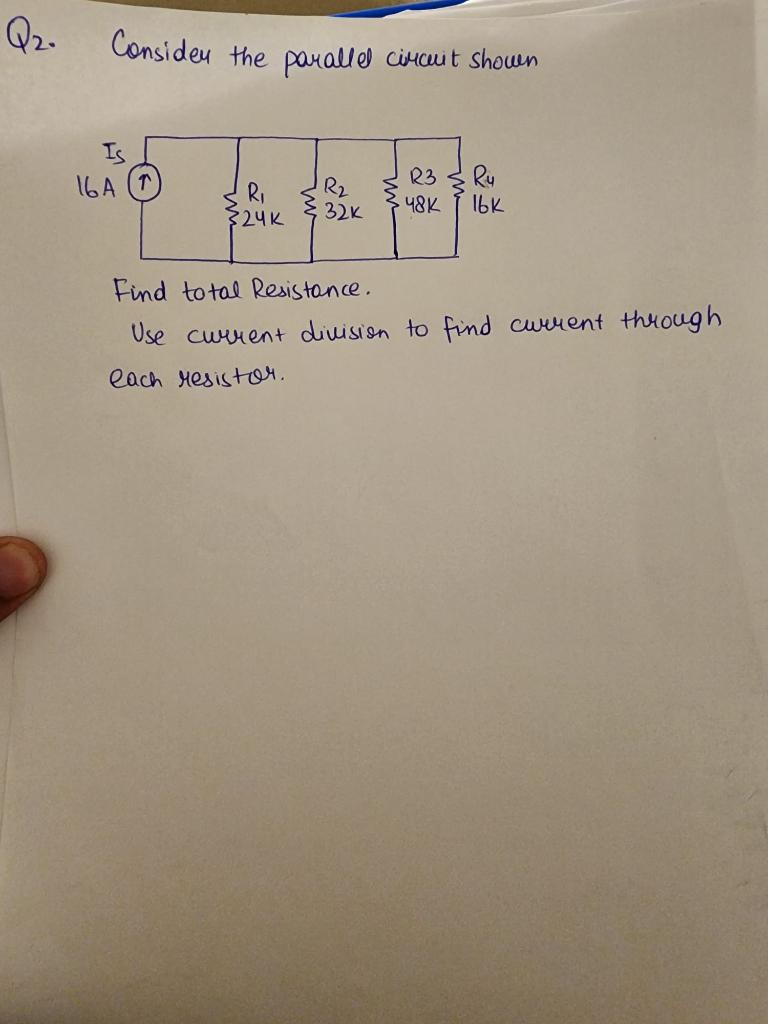 Q2. Consider the parallel circuit shown
Is
16A
R1
24K
R2
32K
R3
48K
R4
16K
Find total Resistance.
Use current division to find current through
each resistor.